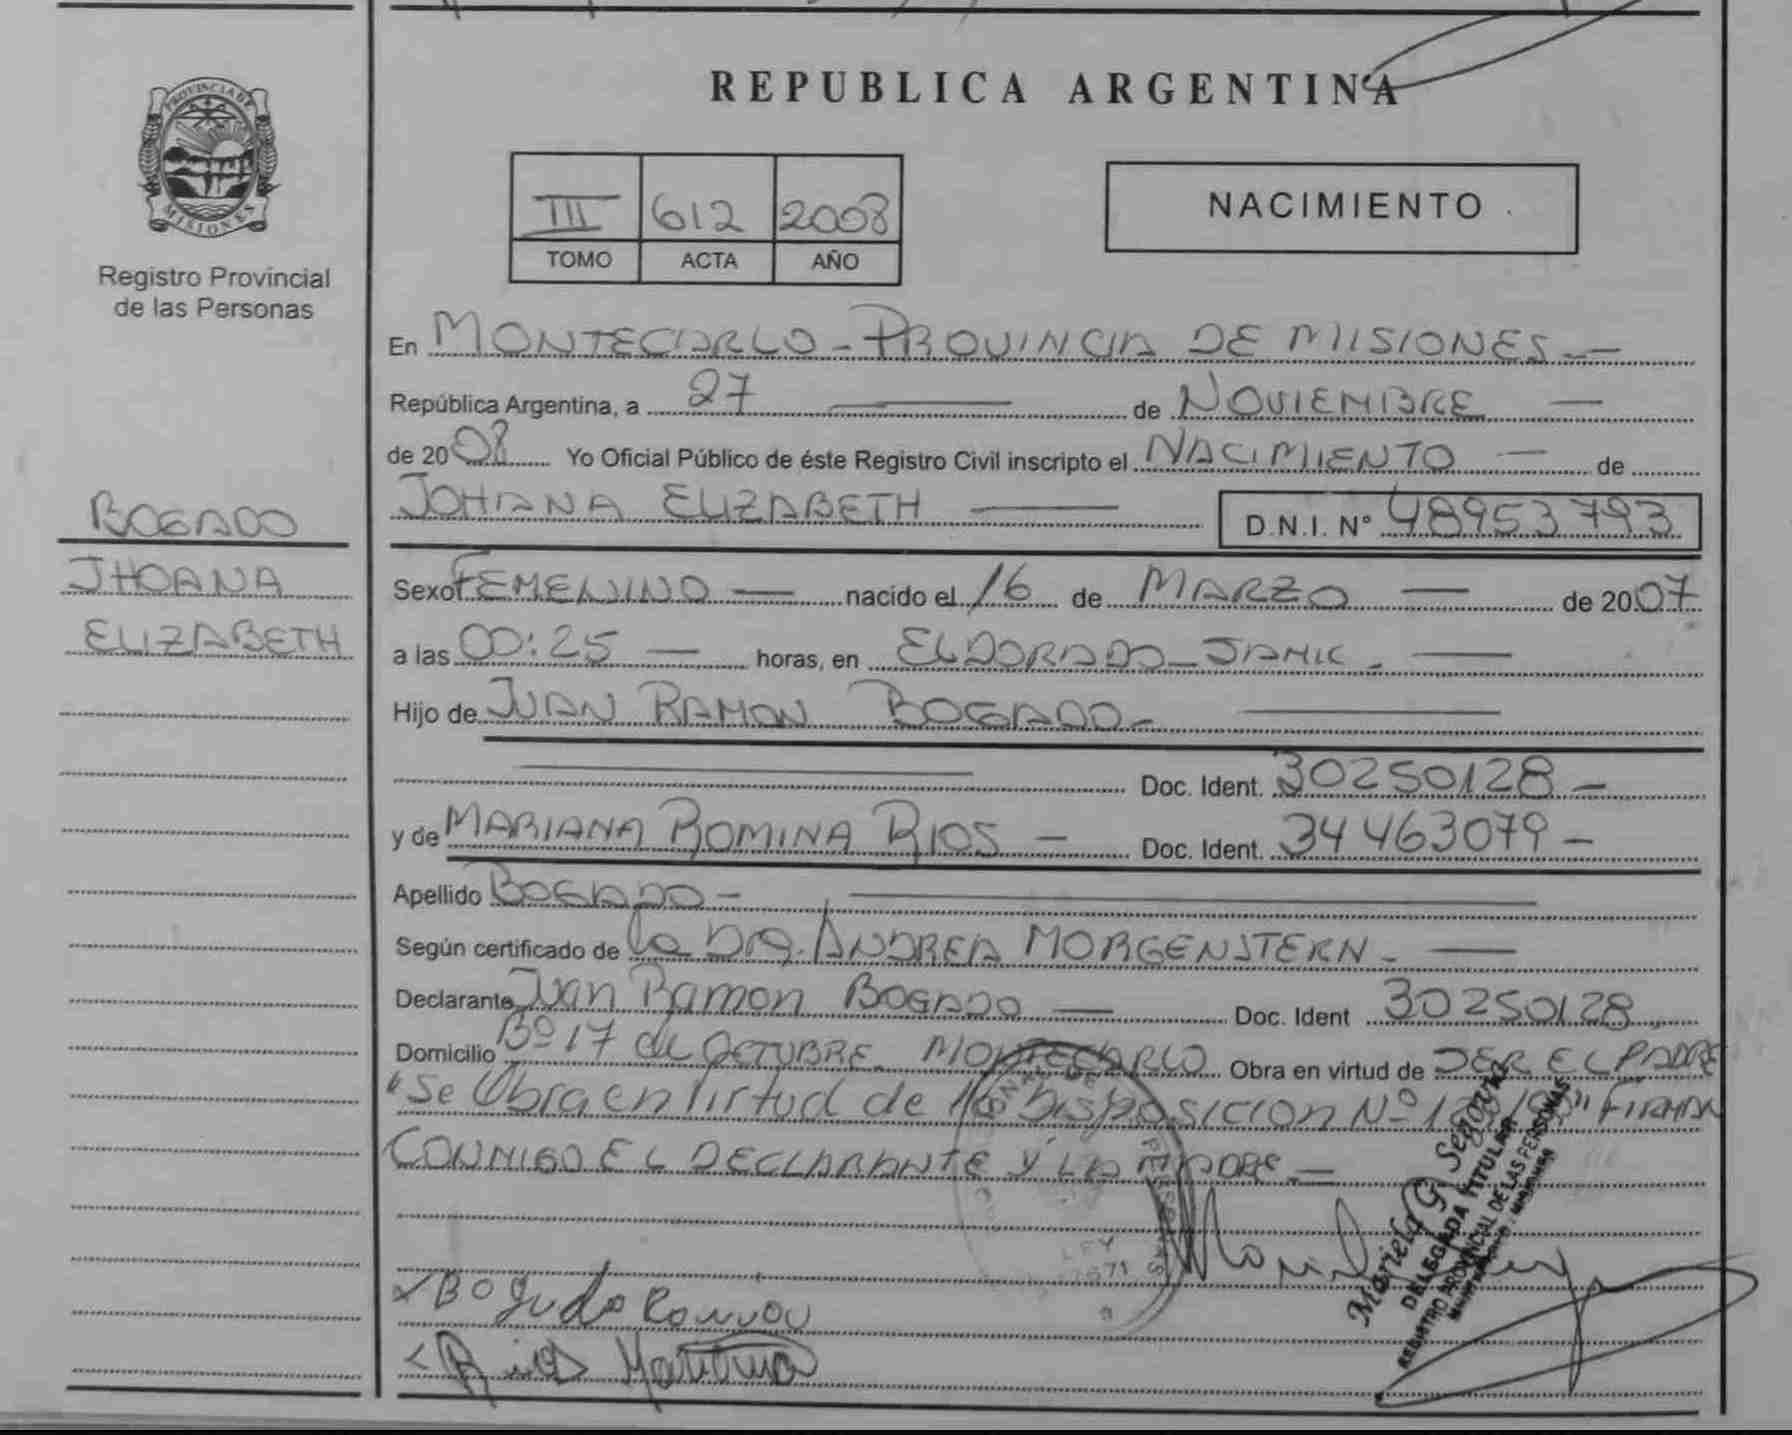 REPUBLICA ARGENTINA
PROVINCIA DE
MISIONES
Registro Provincial
de las Personas
III 612 2008
TOMO ACTA AÑO
NACIMIENTO
En MONTECARLO - PROVINCIA DE MISIONES.-
República Argentina, a 27 de NOVIEMBRE
de 2008 Yo Oficial Público de éste Registro Civil inscripto el NACIMIENTO de
BOGADO
JHOANA
ELIZABETH
JOHANA ELIZABETH D.N.I. Nº 48953793
Sexo FEMENINO nacido el 16 de MARZO de 2007
a las 00:25 horas, en ELDORADO - SAMIC.
Hijo de JUAN RAMON BOGADO-
Doc. Ident. 30250128 -
y de MARIANA ROMINA RIOS - Doc. Ident. 34463079 -
Apellido BOGADO -
Según certificado de la DRA. ANDREA MORGENSTERN.
Declarante Juan Ramon BOGADO Doc. Ident 30250128
Domicilio Bº 17 de OCTUBRE. MONTECARLO Obra en virtud de SER EL PADRE
"Se Obra en Virtud de la Disposicion Nº FIRMAN
CONMIGO EL DECLARANTE Y LA MADRE
Mariela G. Segovia
DELEGADA TITULAR
REGISTRO PROVINCIAL DE LAS PERSONAS
LEY
Bogado Ramon
Rios Mariana